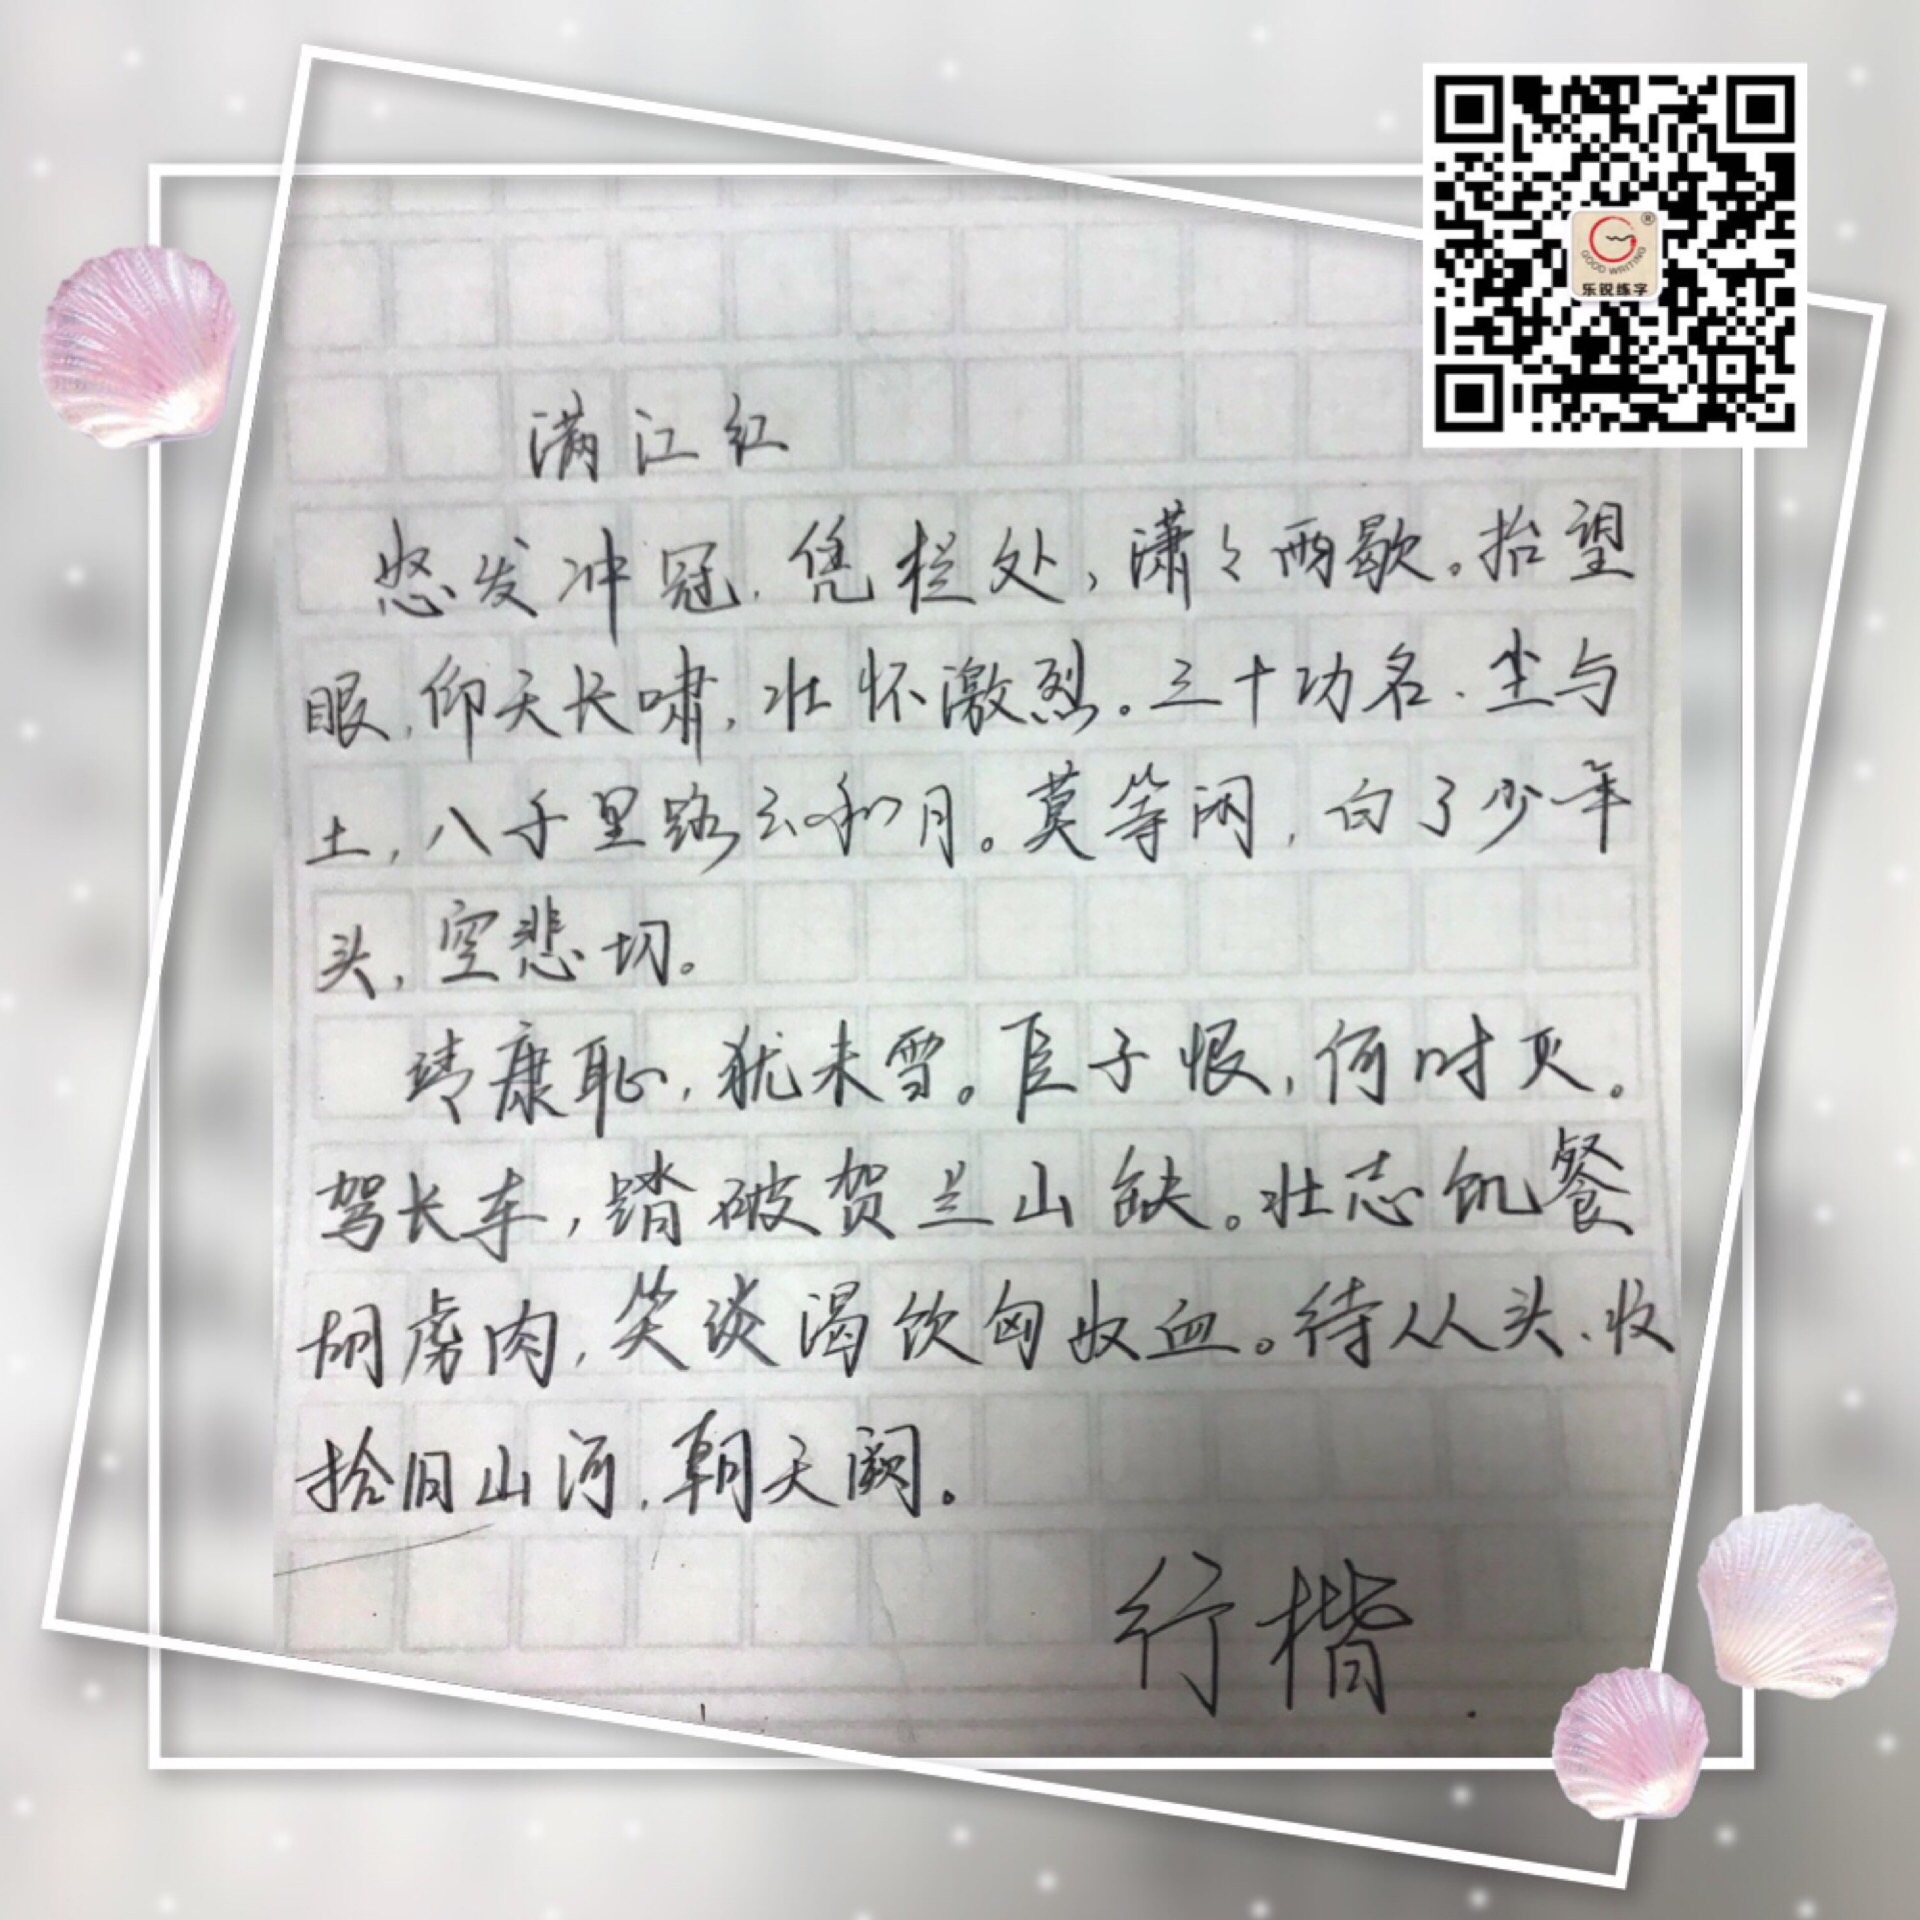 GOOD WRITING
乐锐练字
满江红
怒发冲冠,凭栏处,潇々雨歇。抬望
眼,仰天长啸,壮怀激烈。三十功名、尘与
土,八千里路云和月。莫等闲,白了少年
头,空悲切。
靖康耻,犹未雪。臣子恨,何时灭。
驾长车,踏破贺兰山缺。壮志饥餐
胡虏肉,笑谈渴饮匈奴血。待从头、收
拾旧山河,朝天阙。
行楷.